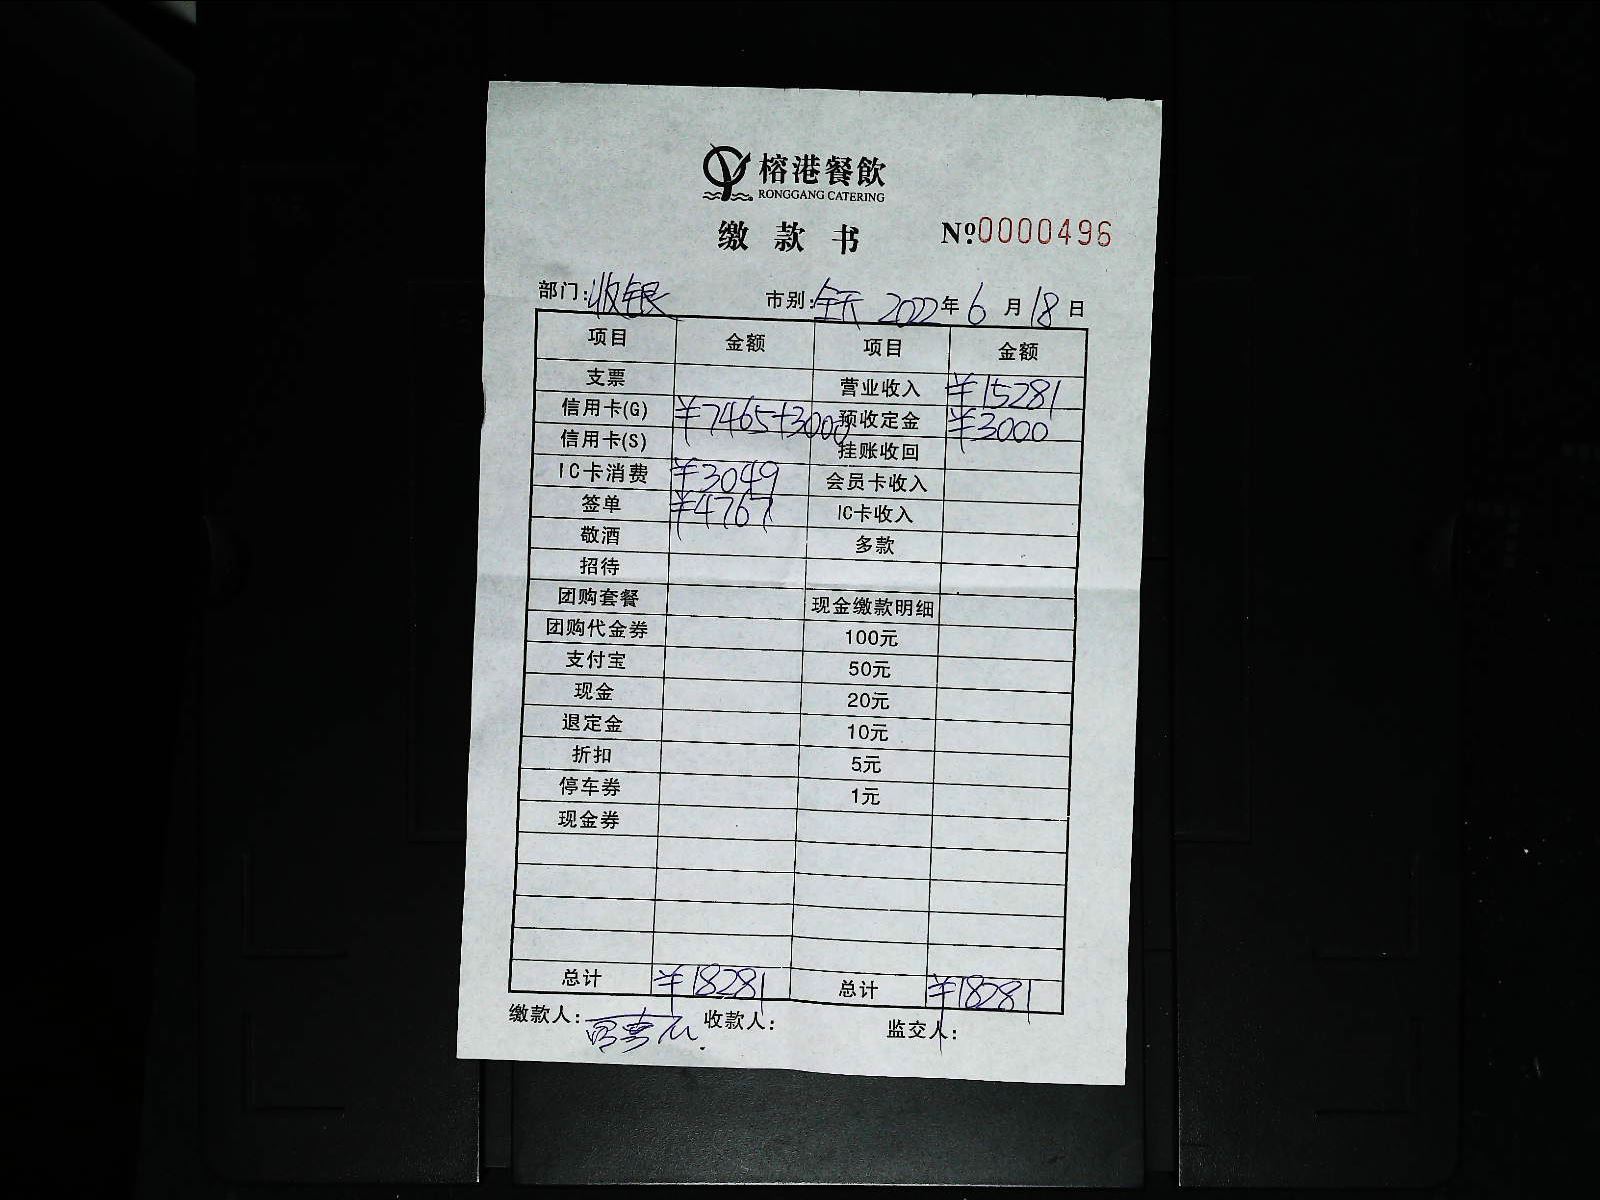 榕港餐飲
RONGGANG CATERING
缴款书 №0000496
部门:收银 市别:全天 2022年6月18日
项目 金额 项目 金额
支票 营业收入 ¥15281
信用卡(G) ¥7465+3000 预收定金 ¥3000
信用卡(S) 挂账收回
IC卡消费 ¥3049 会员卡收入
签单 ¥4767 IC卡收入
敬酒 多款
招待
团购套餐 现金缴款明细
团购代金券 100元
支付宝 50元
现金 20元
退定金 10元
折扣 5元
停车券 1元
现金券
总计 ¥18281 总计 ¥18281
缴款人: 收款人: 监交人: